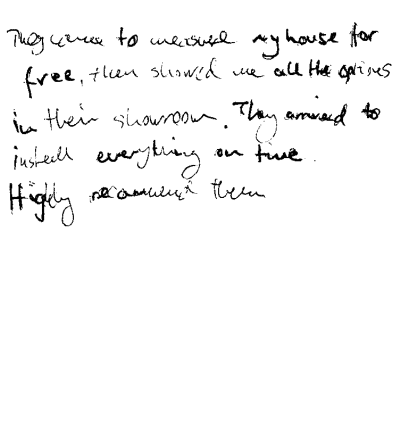 They came to measure my house for
free, then showed me all the options
in their showroom. They arrived to
install everything on time.
Highly recommend them